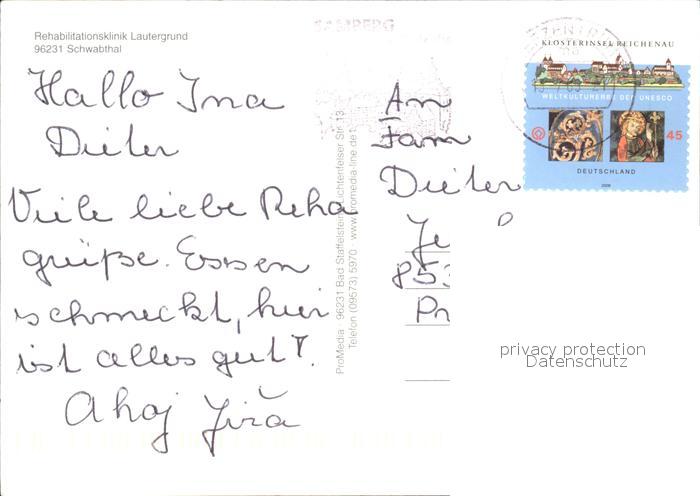 Rehabilitationsklinik Lautergrund
96231 Schwabthal
Hallo Ina
Dieter
Viele liebe Reha
grüße. Essen
schmeckt, hier
ist alles gut!
Ahoj Jiřa
ProMedia · 96231 Bad Staffelstein · Lichtenfelser Str. 13
Telefon (09573) 5970 · www.promedia-line.de
BAMBERG
KLOSTERINSEL REICHENAU
WELTKULTURERBE DER UNESCO
45
DEUTSCHLAND
2008
An
Fam
Dieter
Je
853
Pr
privacy protection
Datenschutz